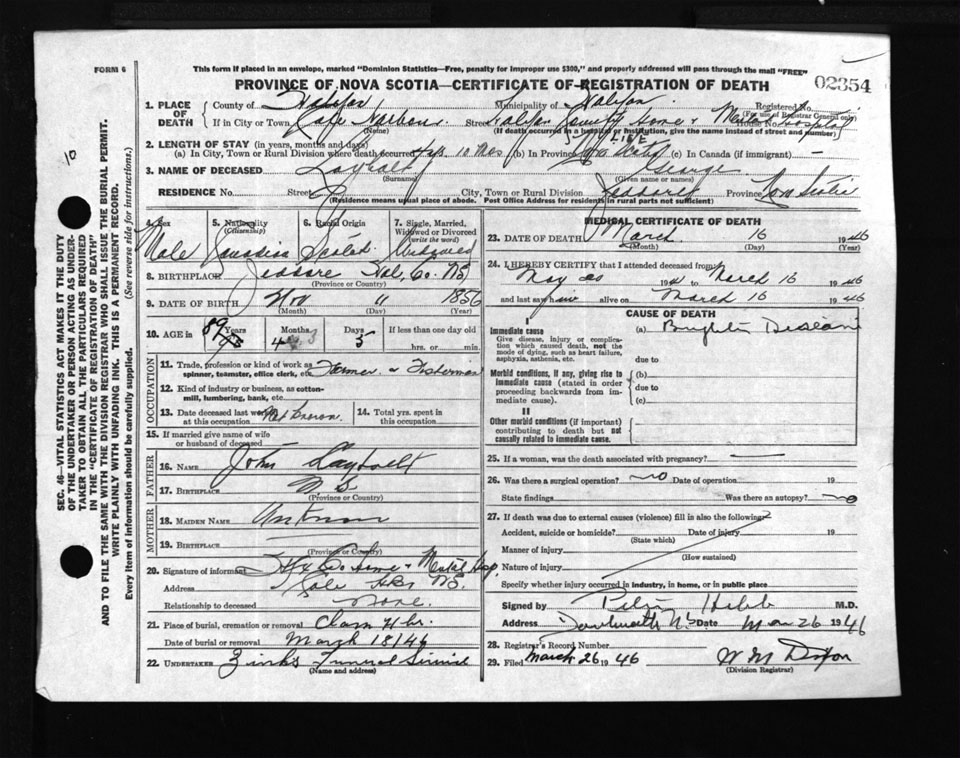 This form if placed in an envelope, marked "Dominion Statistics—Free, penalty for improper use $300," and properly addressed will pass through the mail "FREE"
FORM 6
PROVINCE OF NOVA SCOTIA—CERTIFICATE OF REGISTRATION OF DEATH
02354
1. PLACE OF DEATH
County of Halifax
Municipality of Halifax
Registered No.
(For use of Registrar General only)
If in City or Town Cole Harbour Street Halifax County Home & Mental Hospital House No.
(Name) (If death occurred in a hospital or institution, give the name instead of street and number)
2. LENGTH OF STAY (in years, months and days) LIFE
(a) In City, Town or Rural Division where death occurred 4 yrs. 10 Mos (b) In Province (c) In Canada (if immigrant) —
3. NAME OF DECEASED George
(Surname) (Given name or names)
RESIDENCE No. Street City, Town or Rural Division Jeddore Province Nova Scotia
(Residence means usual place of abode. Post Office Address for residents in rural parts not sufficient)
4. Sex
Male
5. Nationality
(Citizenship)
Canadian
6. Racial Origin
7. Single, Married, Widowed or Divorced
(write the word)
Widowed
8. BIRTHPLACE Jeddore Hal. Co. NS
(Province or Country)
9. DATE OF BIRTH Nov 11 1856
(Month) (Day) (Year)
10. AGE in 89 Years 4 Months 5 Days If less than one day old
hrs. or min.
OCCUPATION
11. Trade, profession or kind of work as spinner, teamster, office clerk, etc. Farmer & Fisherman
12. Kind of industry or business, as cotton-mill, lumbering, bank, etc.
13. Date deceased last worked at this occupation Not Known
14. Total yrs. spent in this occupation
15. If married give name of wife or husband of deceased
FATHER
16. NAME John
17. BIRTHPLACE N S
(Province or Country)
MOTHER
18. MAIDEN NAME Unknown
19. BIRTHPLACE
(Province or Country)
20. Signature of informant Hfx Co Home & Mental Hosp.
Address Cole Hbr NS.
Relationship to deceased None.
21. Place of burial, cremation or removal Clam Hbr.
Date of burial or removal March 18/46
22. UNDERTAKER Zinks Funeral Service
(Name and address)
MEDICAL CERTIFICATE OF DEATH
23. DATE OF DEATH March 16 1946
(Month) (Day) (Year)
24. I HEREBY CERTIFY that I attended deceased from
May 194 to March 16 1946
and last saw him alive on March 16 1946
CAUSE OF DEATH
I
Immediate cause
Give disease, injury or complication which caused death, not the mode of dying, such as heart failure, asphyxia, asthenia, etc.
(a) Brights Disease
due to
Morbid conditions, if any, giving rise to immediate cause (stated in order proceeding backwards from immediate cause).
(b)
due to
(c)
II
Other morbid conditions (if important) contributing to death but not causally related to immediate cause.
25. If a woman, was the death associated with pregnancy? —
26. Was there a surgical operation? no Date of operation 19
State findings Was there an autopsy? no
27. If death was due to external causes (violence) fill in also the following:
Accident, suicide or homicide? Date of injury 19
(State which)
Manner of injury
(How sustained)
Nature of injury
Specify whether injury occurred in industry, in home, or in public place
Signed by M.D.
Address Dartmouth N.S Date Mar 26 1946
28. Registrar's Record Number
29. Filed March 26 1946 W M
(Division Registrar)
10
SEC. 46—VITAL STATISTICS ACT MAKES IT THE DUTY
OF THE UNDERTAKER OR PERSON ACTING AS UNDER-
TAKER TO OBTAIN ALL THE PARTICULARS REQUIRED
IN THE "CERTIFICATE OF REGISTRATION OF DEATH"
AND TO FILE THE SAME WITH THE DIVISION REGISTRAR WHO SHALL ISSUE THE BURIAL PERMIT.
WRITE PLAINLY WITH UNFADING INK. THIS IS A PERMANENT RECORD.
Every item of information should be carefully supplied. (See reverse side for instructions.)